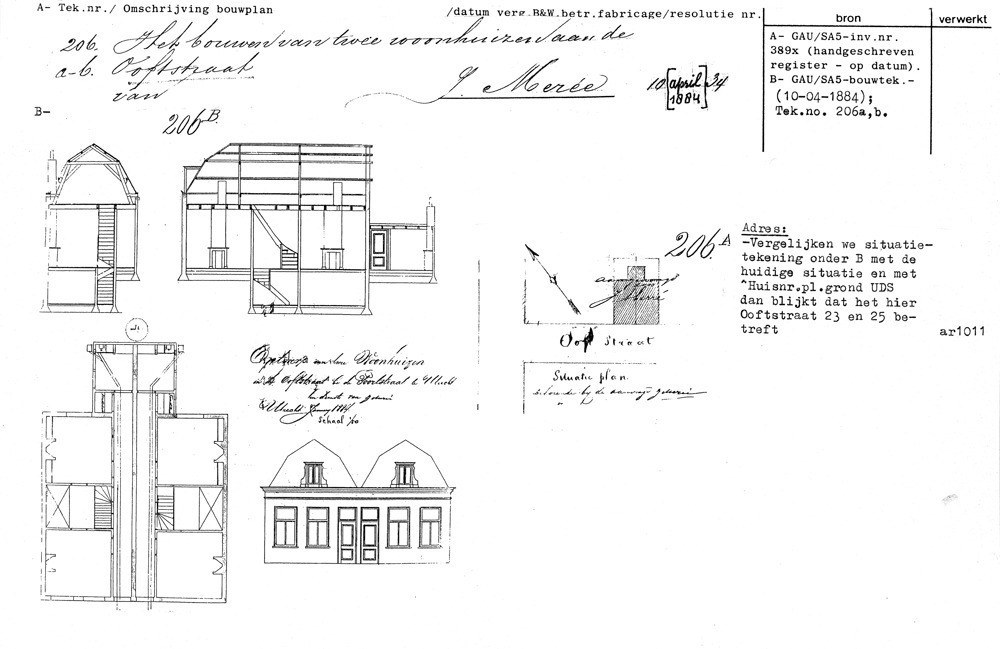 A- Tek.nr./ Omschrijving bouwplan /datum verg.B&W.betr.fabricage/resolutie nr.
bron
verwerkt
206. Het bouwen van twee woonhuizen aan de
a-b. Ooftstraat
van J. Merée 10 [april 1884] 34
A- GAU/SA5-inv.nr.
389x (handgeschreven
register - op datum).
B- GAU/SA5-bouwtek.-
(10-04-1884);
Tek.no. 206a,b.
B-
206 B.
206 A
Adres:
-Vergelijken we situatie-
tekening onder B met de
huidige situatie en met
^Huisnr.pl.grond UDS
dan blijkt dat het hier
Ooftstraat 23 en 25 be-
treft
ar1011
Oof Straat
Situatie plan.
behoorende bij de aanvraag
Woonhuizen
Ooftstraat
Utrecht
Schaal